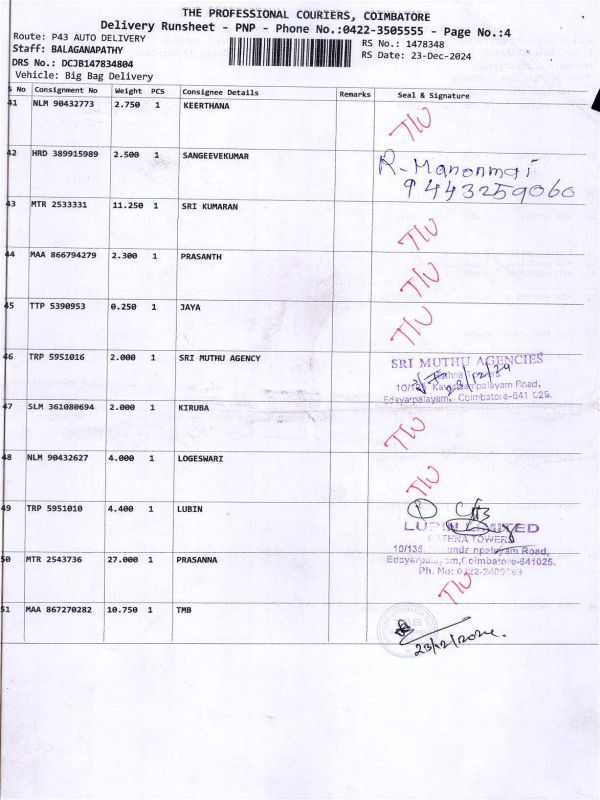 THE PROFESSIONAL COURIERS, COIMBATORE
Delivery Runsheet - PNP - Phone No.:0422-3505555 - Page No.:4
Route: P43 AUTO DELIVERY
RS No.: 1478348
Staff: BALAGANAPATHY
RS Date: 23-Dec-2024
DRS No.: DCJB147834804
Vehicle: Big Bag Delivery
S No Consignment No Weight PCS Consignee Details Remarks Seal & Signature
41 NLM 90432773 2.750 1 KEERTHANA
42 HRD 389915989 2.500 1 SANGEEVEKUMAR R-Manonmai
9443259060
43 MTR 2533331 11.250 1 SRI KUMARAN
44 MAA 866794279 2.300 1 PRASANTH
45 TTP 5390953 0.250 1 JAYA
46 TRP 5951016 2.000 1 SRI MUTHU AGENCY SRI MUTHU AGENCIES
23/12/24
palayam Road,
Edayarpalayam, Coimbatore-641 025.
47 SLM 361080694 2.000 1 KIRUBA
48 NLM 90432627 4.000 1 LOGESWARI
49 TRP 5951010 4.400 1 LUBIN
LUPIN LIMITED
TOWERS
10/135 palayam Road,
Coimbatore-641025.
Ph. No: 0422-
50 MTR 2543736 27.000 1 PRASANNA
51 MAA 867270282 10.750 1 TMB
23/12/2024.